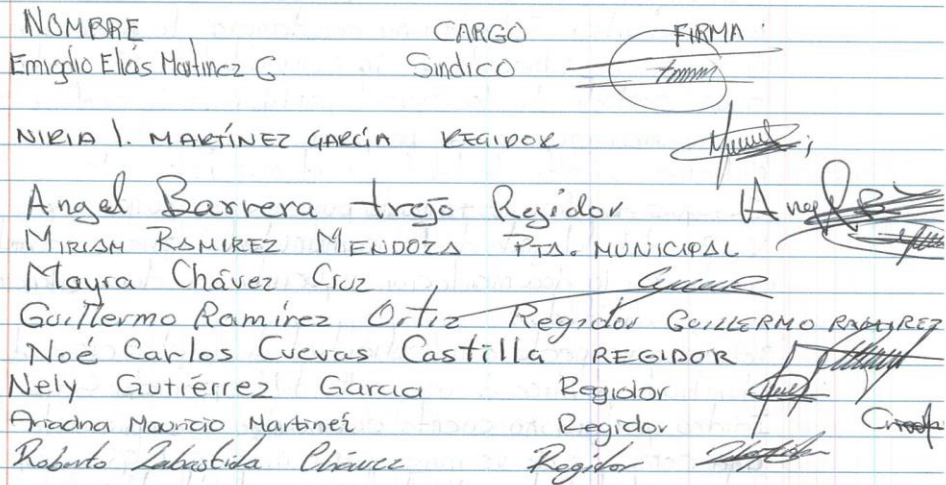 NOMBRE CARGO FIRMA
Emigdio Elias Martinez G. Sindico
NIRIA I. MARTÍNEZ GARCÍA REGIDOR
Angel Barrera trejo Regidor Angel B
MIRIAM RAMIREZ MENDOZA PTA. MUNICIPAL
Mayra Chávez Cruz
Guillermo Ramírez Ortiz Regidor GUILLERMO RAMIREZ
Noé Carlos Cuevas Castilla REGIDOR
Nely Gutiérrez Garcia Regidor
Ariadna Mauricio Martinez Regidor
Roberto Labastida Chávez Regidor